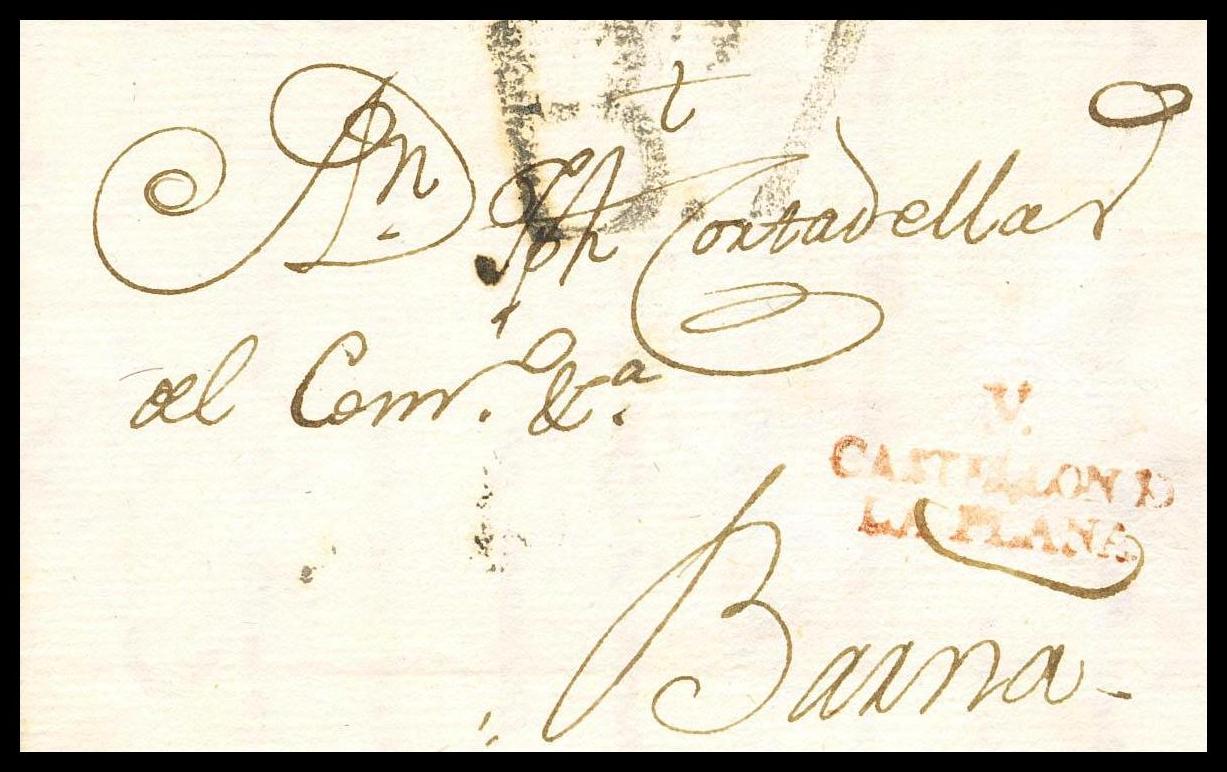 t
A Dn Jph Cortadellas
del Comro. &a.
V.
CASTELLON D
LA PLANA
Barna